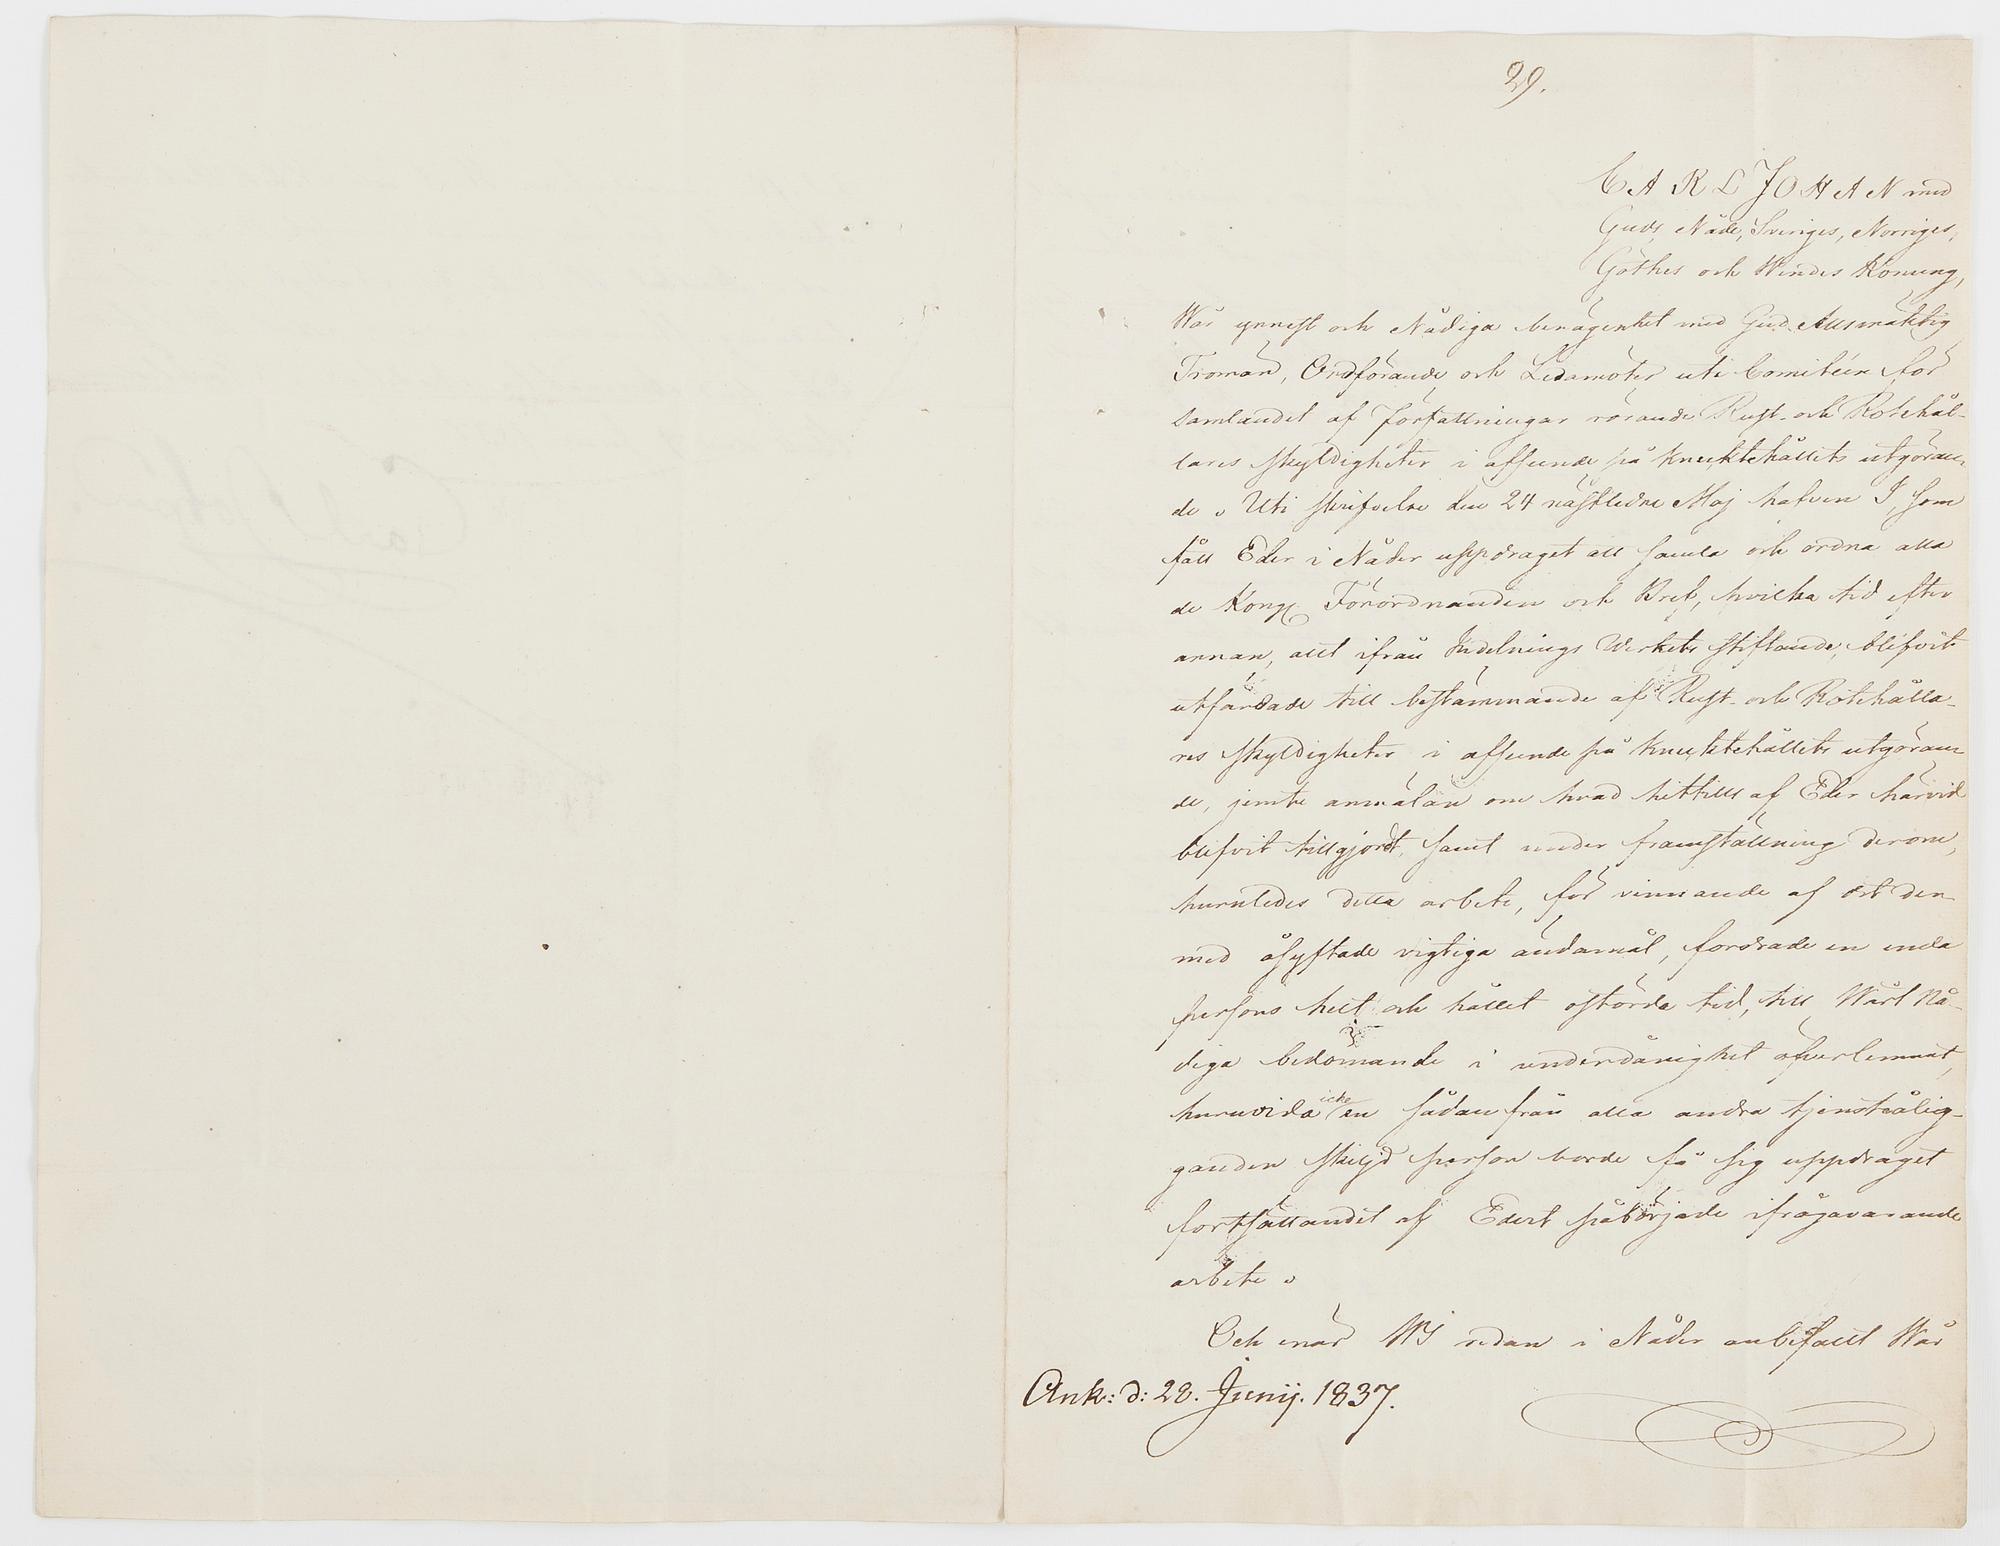 29.
CARL JOHAN med
Guds Nåde, Sveriges, Norriges,
Göthes och Wendes Konung,
Wår ynnest och Nådiga benägenhet med Gud Allsmäktig
Tromän, Ordförande och Ledamöter uti Comitéen för
samlandet af Författningar rörande Rust- och Rotehål-
lares skyldigheter i afseende på knektehållets utgöran-
de. Uti skrifvelse den 24 nästledne Maj hafven I, som
fått Eder i Nåder uppdraget att samla och ordna alla
de Kongl Förordnanden och Bref, hvilka tid efter
annan, allt ifrån Indelnings Werkets stiftande, blifvit
utfärdade till bestämmande af Rust- och Rotehålla-
res skyldigheter i afseende på knektehållets utgöran-
de, jemte anmälan om hvad hittills af Eder härvid
blifvit tillgjordt, samt under framställning derom,
huruledes detta arbete, för vinnande af det der-
med åsyftade vigtiga ändamål, fordrade en enda
persons helt och hållet ostörda tid, till Wårt Nå-
diga bedömande i underdånighet öfverlemnat,
huruvida icke en sådan från alla andra tjensteålig-
ganden skiljd person borde få sig uppdraget
fortsättandet af Edert påbörjade ifrågavarande
arbete.
Och enär WI redan i Nåder anbefallt Wår
Ank: d: 28. Junij. 1837.